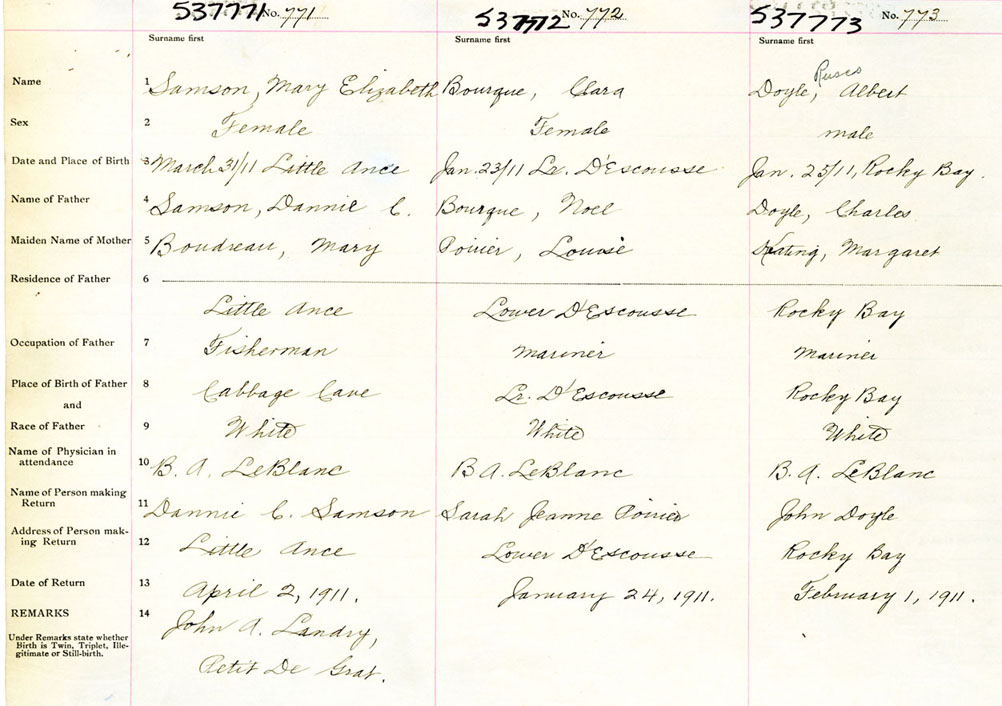 537771 No. 771 537772 No. 772 537773 No. 773
Surname first Surname first Surname first
Name 1 Samson, Mary Elizabeth Bourque, Clara Doyle, Albert
Sex 2 Female Female male
Date and Place of Birth 3 March 31/11 Little Ance Jan. 23/11 Lr. D'Escousse Jan. 25/11, Rocky Bay.
Name of Father 4 Samson, Dannie C. Bourque, Noel Doyle, Charles
Maiden Name of Mother 5 Boudreau, Mary Poirier, Louise Keating, Margaret
Residence of Father 6
Little Ance Lower D'Escousse Rocky Bay
Occupation of Father 7 Fisherman Mariner Mariner
Place of Birth of Father 8 Cabbage Cave Lr. D'Escousse Rocky Bay
and
Race of Father 9 White White White
Name of Physician in
attendance 10 B. A. LeBlanc B A. LeBlanc B. A. LeBlanc
Name of Person making
Return 11 Dannie C. Samson Sarah Jeanne Poirier John Doyle
Address of Person mak-
ing Return 12 Little Ance Lower D'Escousse Rocky Bay
Date of Return 13 April 2, 1911. January 24, 1911. February 1, 1911.
REMARKS 14 John A. Landry,
Under Remarks state whether
Birth is Twin, Triplet, Ille-
gitimate or Still-birth.
Petit De Grat.